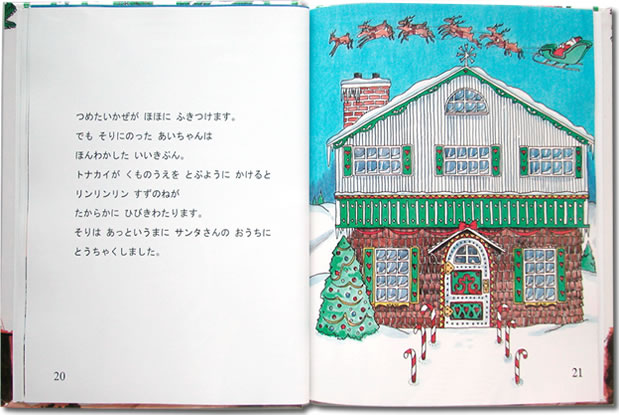 つめたいかぜが ほほに ふきつけます。
でも そりにのった あいちゃんは
ほんわかした いいきぶん。
トナカイが くものうえを とぶように かけると
リンリンリン すずのねが
たからかに ひびきわたります。
そりは あっというまに サンタさんの おうちに
とうちゃくしました。
20
21